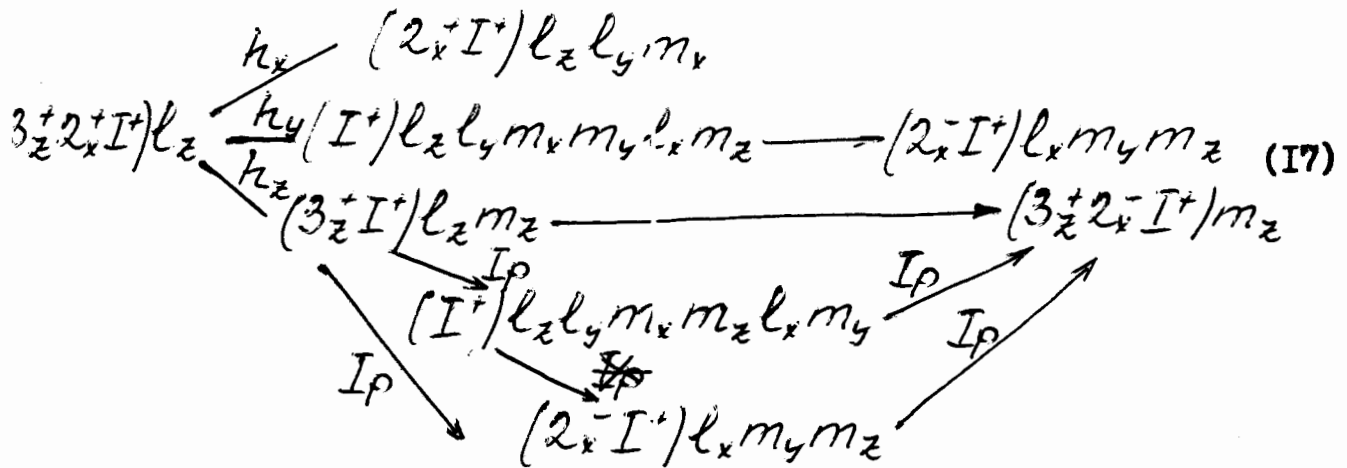 hₓ (2ₓ⁺I⁺)ℓ_zℓ_ymₓ
3_z⁺2ₓ⁺I⁺)ℓ_z h_y (I⁺)ℓ_zℓ_ymₓm_yℓₓm_z (2ₓ⁻I⁺)ℓₓm_ym_z (I7)
h_z (3_z⁺I⁺)ℓ_zm_z (3_z⁺2ₓ⁻I⁺)m_z
Ip Ip
(I⁺)ℓ_zℓ_ymₓm_zℓₓm_y Ip
Ip
(2ₓ⁻I⁺)ℓₓm_ym_z